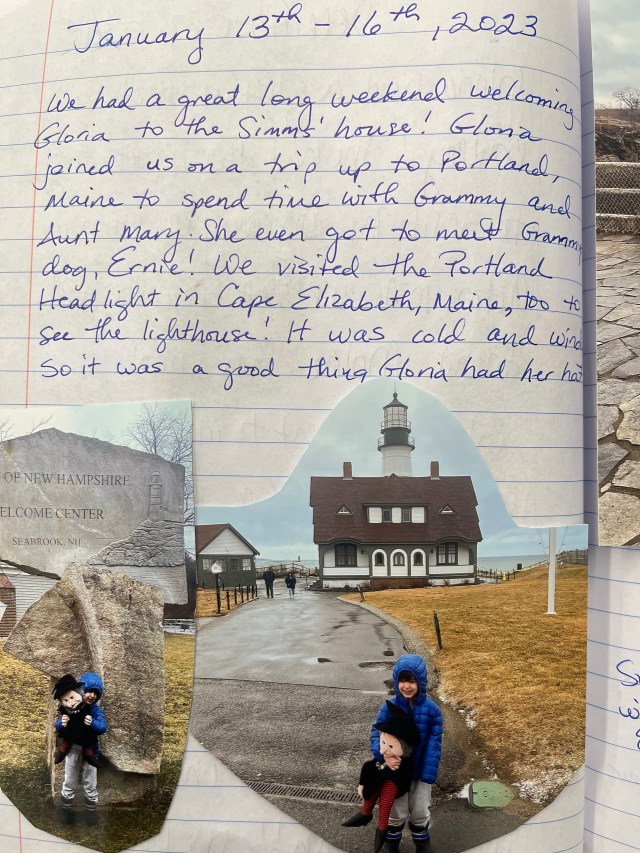 January 13th - 16th, 2023
We had a great long weekend welcoming
Gloria to the Simms' house! Gloria
joined us on a trip up to Portland,
Maine to spend time with Grammy and
Aunt Mary. She even got to meet
dog, Ernie! We visited the Portland
Headlight in Cape Elizabeth, Maine, too to
see the lighthouse! It was cold and
So it was a good thing Gloria had her hat
OF NEW HAMPSHIRE
ELCOME CENTER
SEABROOK, NH